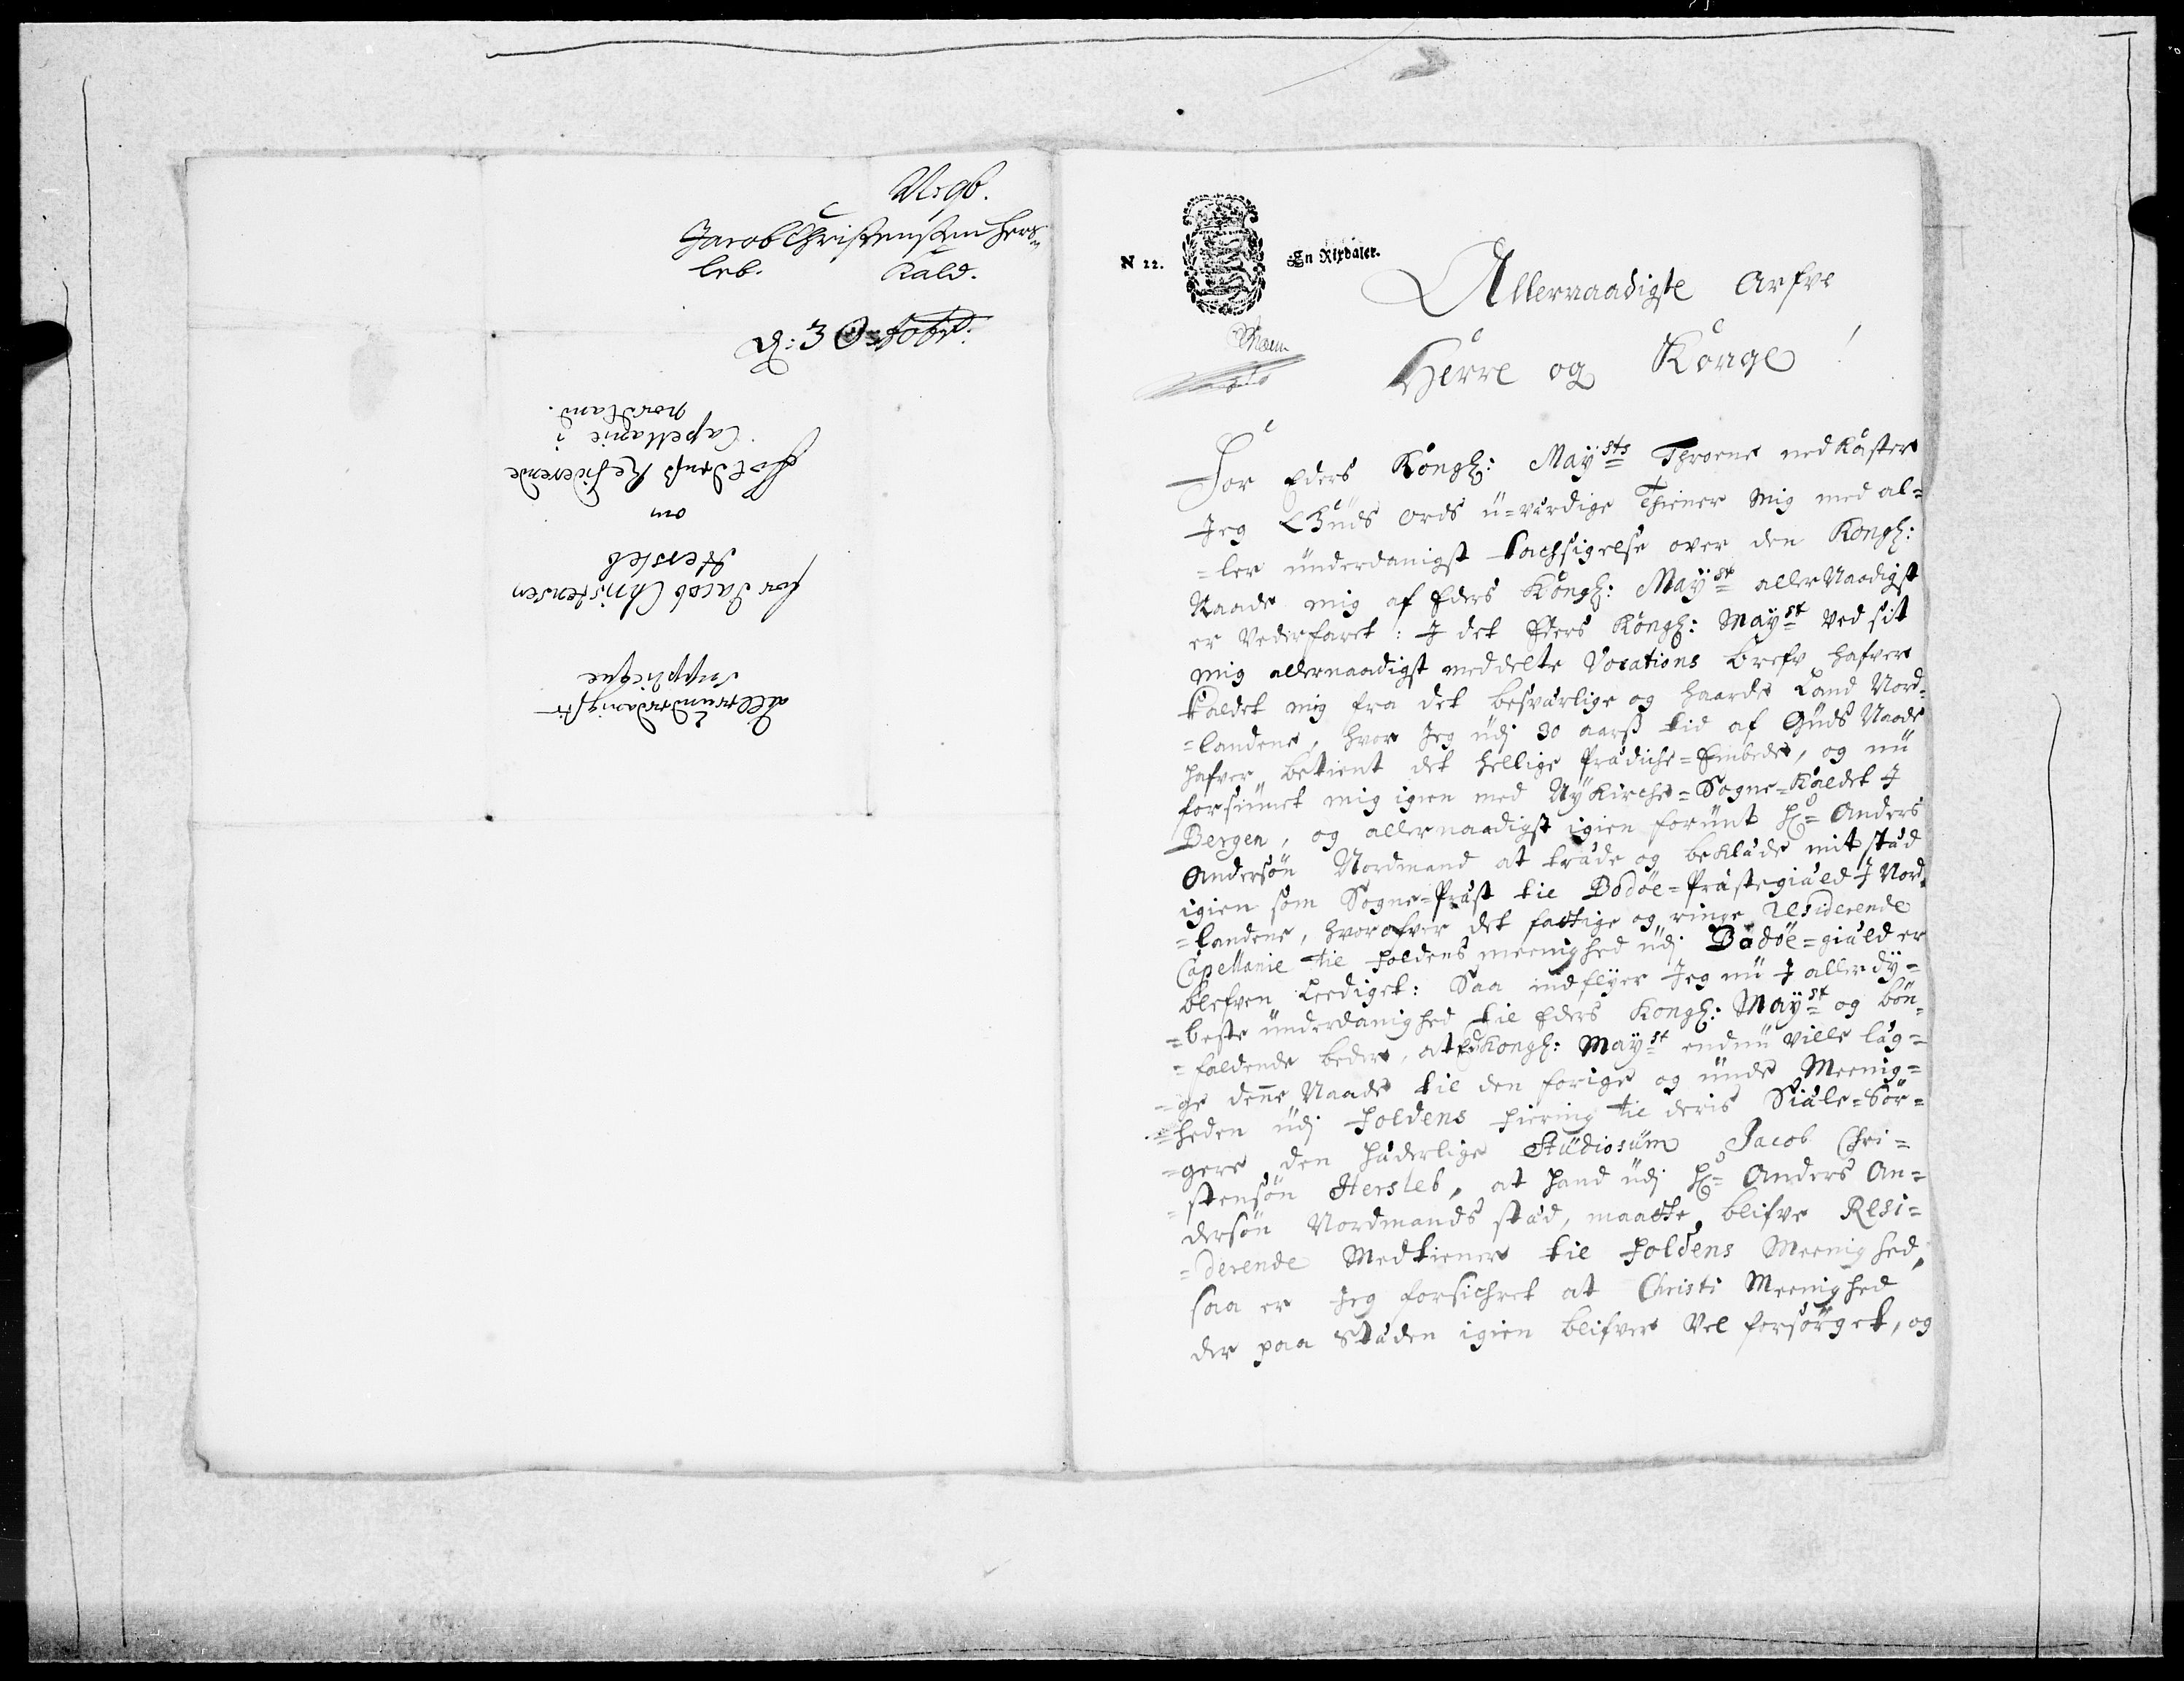 Jacob Christensen Hers=
leb. Kald.
d: 3 Octobr.
Allerunderdanigste
Supplicque
for Jacob Christensen
Hersleb
om
Foldens Residerende
Capellanie i
Nordland.
N 22. En Rixdaler.
Allernaadigste Arfve
Herre og Konge!
For Eders Kongl: Maysts Throene nedkaster
Jeg Guds ords u=værdige Thiener mig med al=
=ler underdanigst tachsigelse over den Kongl:
Naade mig af Eders Kongl: Mayst allerNaadigst
er Vederfaret: I det Eders Kongl: Mayst ved sit
mig allernaadigst meddelte Vocations brefv hafver
kaldet mig fra det besværlige og haarde Land Nord=
=landene, hvor Jeg udj 30 aarß tid af Guds Naade
hafver betient det hellige Prædiche=Embede, og nu
forsiunet mig igien med Nykirche=Sogne=Kaldet I
Bergen, og allernaadigst igien forunt Hr= Anders
Andersøn Nordmand at træde og beklæde mit stæd
igien som Sogne=Præst til Bodøe=Præstegiæld I Nord=
=landene, hvorofver det fattige og ringe residerende
Capellanie til Foldens meenighed udj Bodøe=giæld er
blefven Leediget: Saa indflyer Jeg nu I allerdy=
=beste underdanighed til Eders Kongl: Mayst og bøn=
=faldende beder, at Ed Kongl: Mayst endnu ville læg=
=ge denne Naade til den forige og unde Meenig=
=heden udj Foldens Fiering til deris Siæle=Sør=
=gere den hæderlige Studiosum Jacob Chri=
=stensøn Hersleb, at hand udj Hr= Anders An=
dersøn Nordmands stæd, maatte blifve Resi=
=derende Medtiener til Foldens Meenighed,
saa er Jeg forsichret at Christi Meenighed
der paa Stæden igien blifver Vel forsørget, og